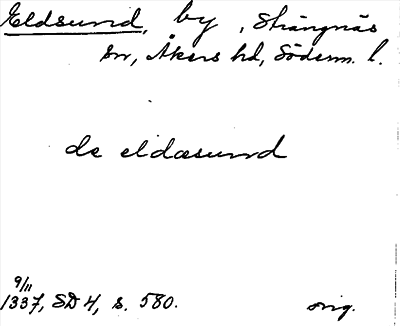 Eldsund, by, Strängnäs
sn, Åkers hd, Söderm. l.
de eldasund
9/11
1337, SD 4, s. 580.
orig.